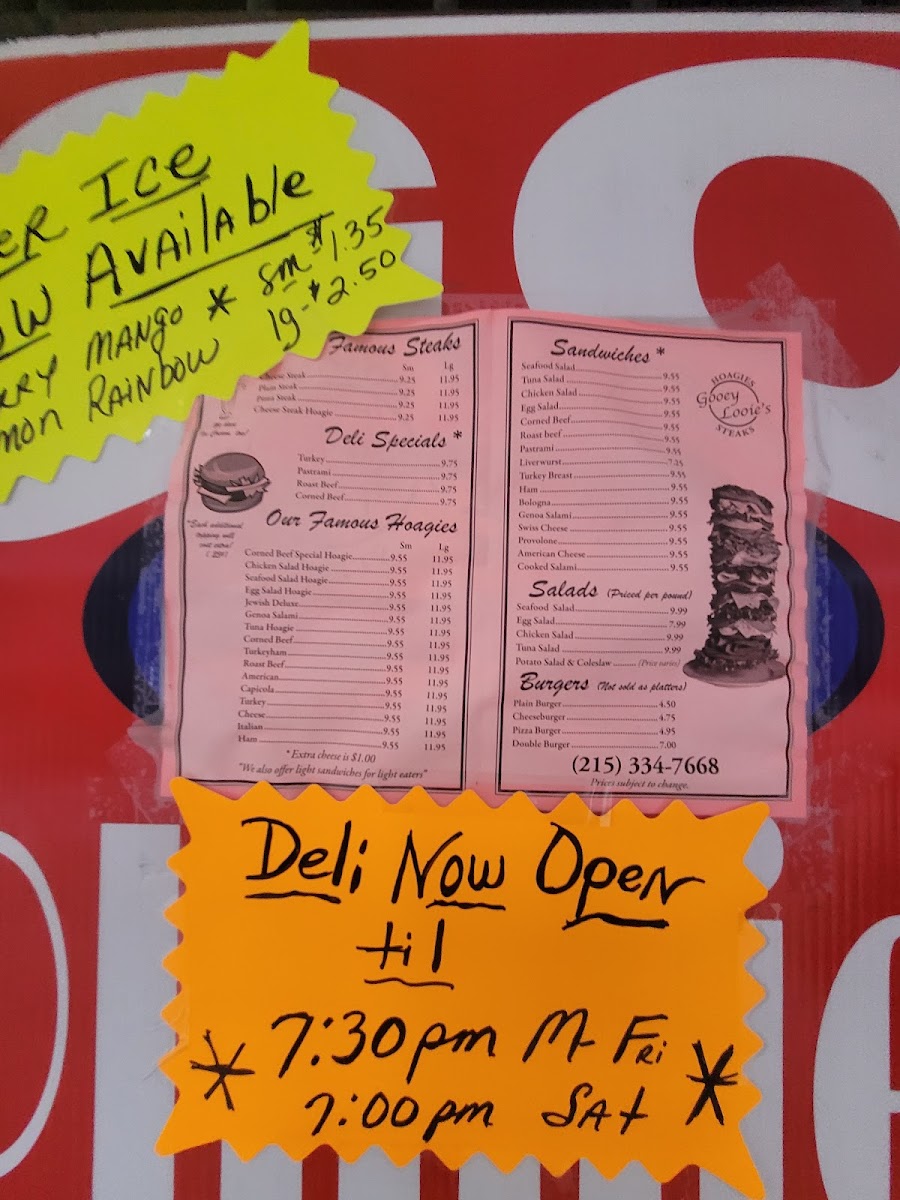 Ice
Available
MANGO * Sm $1.35
RAINBOW lg-$2.50
Famous Steaks
Sm Lg
Cheese Steak 9.25 11.95
Plain Steak 9.25 11.95
Pizza Steak 9.25 11.95
Cheese Steak Hoagie 9.25 11.95
Deli Specials *
Turkey 9.75
Pastrami 9.75
Roast Beef 9.75
Corned Beef 9.75
"Each additional
topping will
cost extra!
Our Famous Hoagies
Sm Lg
Corned Beef Special Hoagie 9.55 11.95
Chicken Salad Hoagie 9.55 11.95
Seafood Salad Hoagie 9.55 11.95
Egg Salad Hoagie 9.55 11.95
Jewish Deluxe 9.55 11.95
Genoa Salami 9.55 11.95
Tuna Hoagie 9.55 11.95
Corned Beef 9.55 11.95
Turkeyham 9.55 11.95
Roast Beef 9.55 11.95
American 9.55 11.95
Capicola 9.55 11.95
Turkey 9.55 11.95
Cheese 9.55 11.95
Italian 9.55 11.95
Ham 9.55 11.95
*Extra cheese is $1.00
"We also offer light sandwiches for light eaters"
Sandwiches *
Seafood Salad 9.55
Tuna Salad 9.55
Chicken Salad 9.55
Egg Salad 9.55
Corned Beef 9.55
Roast beef 9.55
Pastrami 9.55
Liverwurst
Turkey Breast 9.55
Ham 9.55
Bologna 9.55
Genoa Salami 9.55
Swiss Cheese 9.55
Provolone 9.55
American Cheese 9.55
Cooked Salami 9.55
HOAGIES
Gooey
Looie's
STEAKS
Salads (Priced per pound)
Seafood Salad 9.99
Egg Salad 7.99
Chicken Salad 9.99
Tuna Salad 9.99
Potato Salad & Coleslaw (Price varies)
Burgers (Not sold as platters)
Plain Burger 4.50
Cheeseburger 4.75
Pizza Burger 4.95
Double Burger 7.00
(215) 334-7668
Prices subject to change.
Deli Now Open
til
* 7:30pm M-Fri *
7:00pm SAt